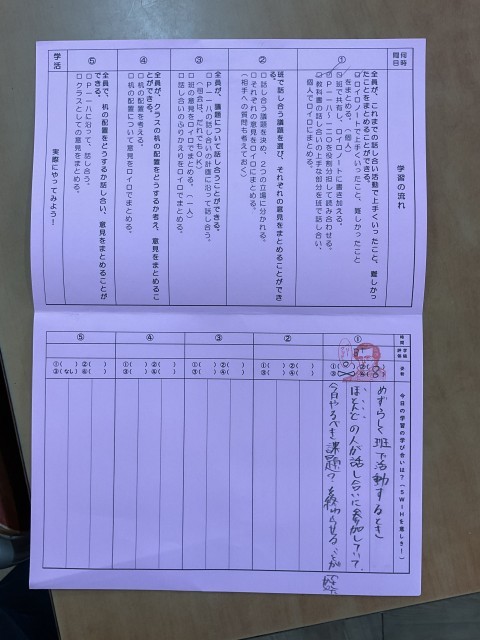 学習の流れ
何時間目
①
全員が、これまでの話し合い活動で上手くいったこと、難しかったことをまとめることができる。
□ロイロノートで上手くいったこと、難しかったことをまとめる。(個人)
□班で共有し、ロイロノートに書き加える。
□P118~120を役割分担して読み合わせる。
□教科書の話し合いの上手な部分を班で話し合い、個人でロイロにまとめる。
②
班で話し合う議題を選び、それぞれの意見をまとめることができる。
□話し合う議題を決め、2つの立場に分かれる。
□それぞれの意見をロイロにまとめる。
(相手への質問も考えておく)
③
全員が、議題について話し合うことができる。
□P118の話し合いの計画に沿って話し合う。
(司会は、だれでもOK)
□班の意見をロイロでまとめる。(一人)
□話し合いのふりかえりをロイロでまとめる。
④
全員が、クラスの机の配置をどうするか考え、意見をまとめることができる。
□机の配置を考える。
□机の配置について意見をロイロでまとめる。
⑤
全員で、机の配置をどうするか話し合い、意見をまとめることができる。
□P118に沿って、話し合う。
□クラスとしての意見をまとめる。
学活
実際にやってみよう!
時間
評価
合言
今日の学習の学び合いは?(5W1Hを意しき!)
①
めずらしく班で活動するとき
ほとんどの人が話し合いに参加していて、
今日やるべき課題?を終わらせることが
②
①( ) ②( )
③( ) ④( )
③
①( ) ②( )
③( ) ④( )
④
①( ) ②( )
③( ) ④( )
⑤
①( ) ②( )
③(なし) ④( )